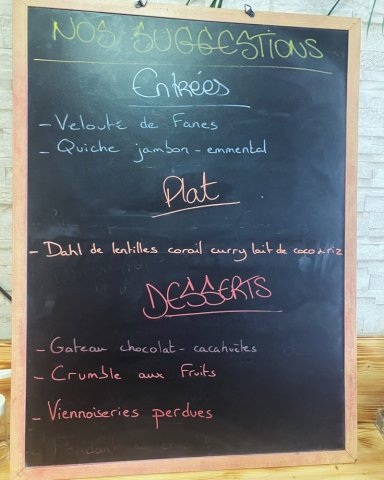 NOS SUGGESTIONS
Entrées
- Velouté de Fanes
- Quiche jambon - emmental
Plat
- Dahl de lentilles corail curry lait de coco & riz
DESSERTS
- Gateau chocolat - cacahuètes
- Crumble aux Fruits
- Viennoiseries perdues